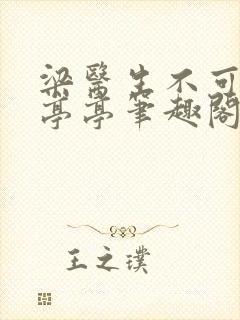 梁醫生不可
亭亭筆趣閣
王之璞